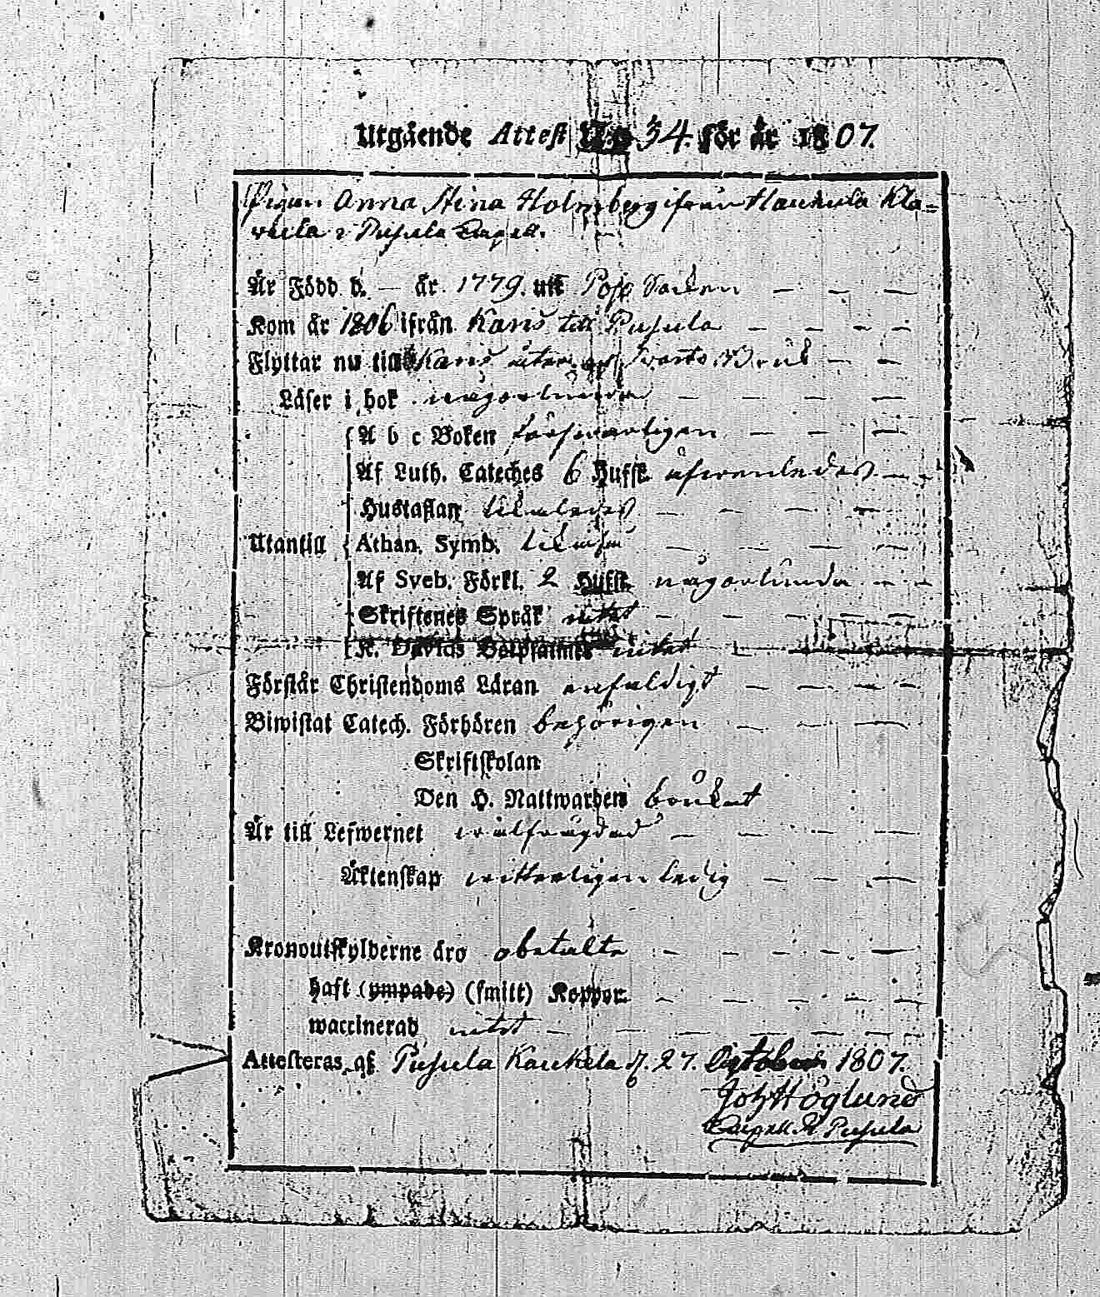 Utgående Attest N:o 34. för år 1807.
Pigan Anna Stina Holmberg ifrån Haukula Kla=
vhela i Pusula Capell.
Är Född d. — år 1779. uti Pojo Socken — — —
Kom år 1806 ifrån Karis till Pusula — — — —
Flyttar nu till Karis åter Svarto Bruk — —
Läser i bok någorlunda — — — — —
A b c Boken försvarligen — — — —
Af Luth. Cateches 6 Hufst. äfwenledes — —
Hustaflan likaledes — — — —
Utantill Athan. Symb. — — — —
Af Sveb. Förkl. 2 Hufst. någorlunda — —
Skriftenes Språk intet — — — —
K. Davids Botpsalmer intet — — — —
Förstår Christendoms Läran enfaldigt — — — —
Biwistat Catech. Förhören behörigen — — —
Skriftskolan
Den H. Nattwarden brukat
Är till Lefwernet wälfrägdad — — — —
Äktenskap witterligen ledig — — —
Kronoutskylderne äro obetalte — — — —
haft (ympade) (smitt) Koppor — — — —
waccinerad intet — — — — —
Attesteras af Pusula Kaukela d. 27. October 1807.
Joh Höglund
Capell. P. Pusula